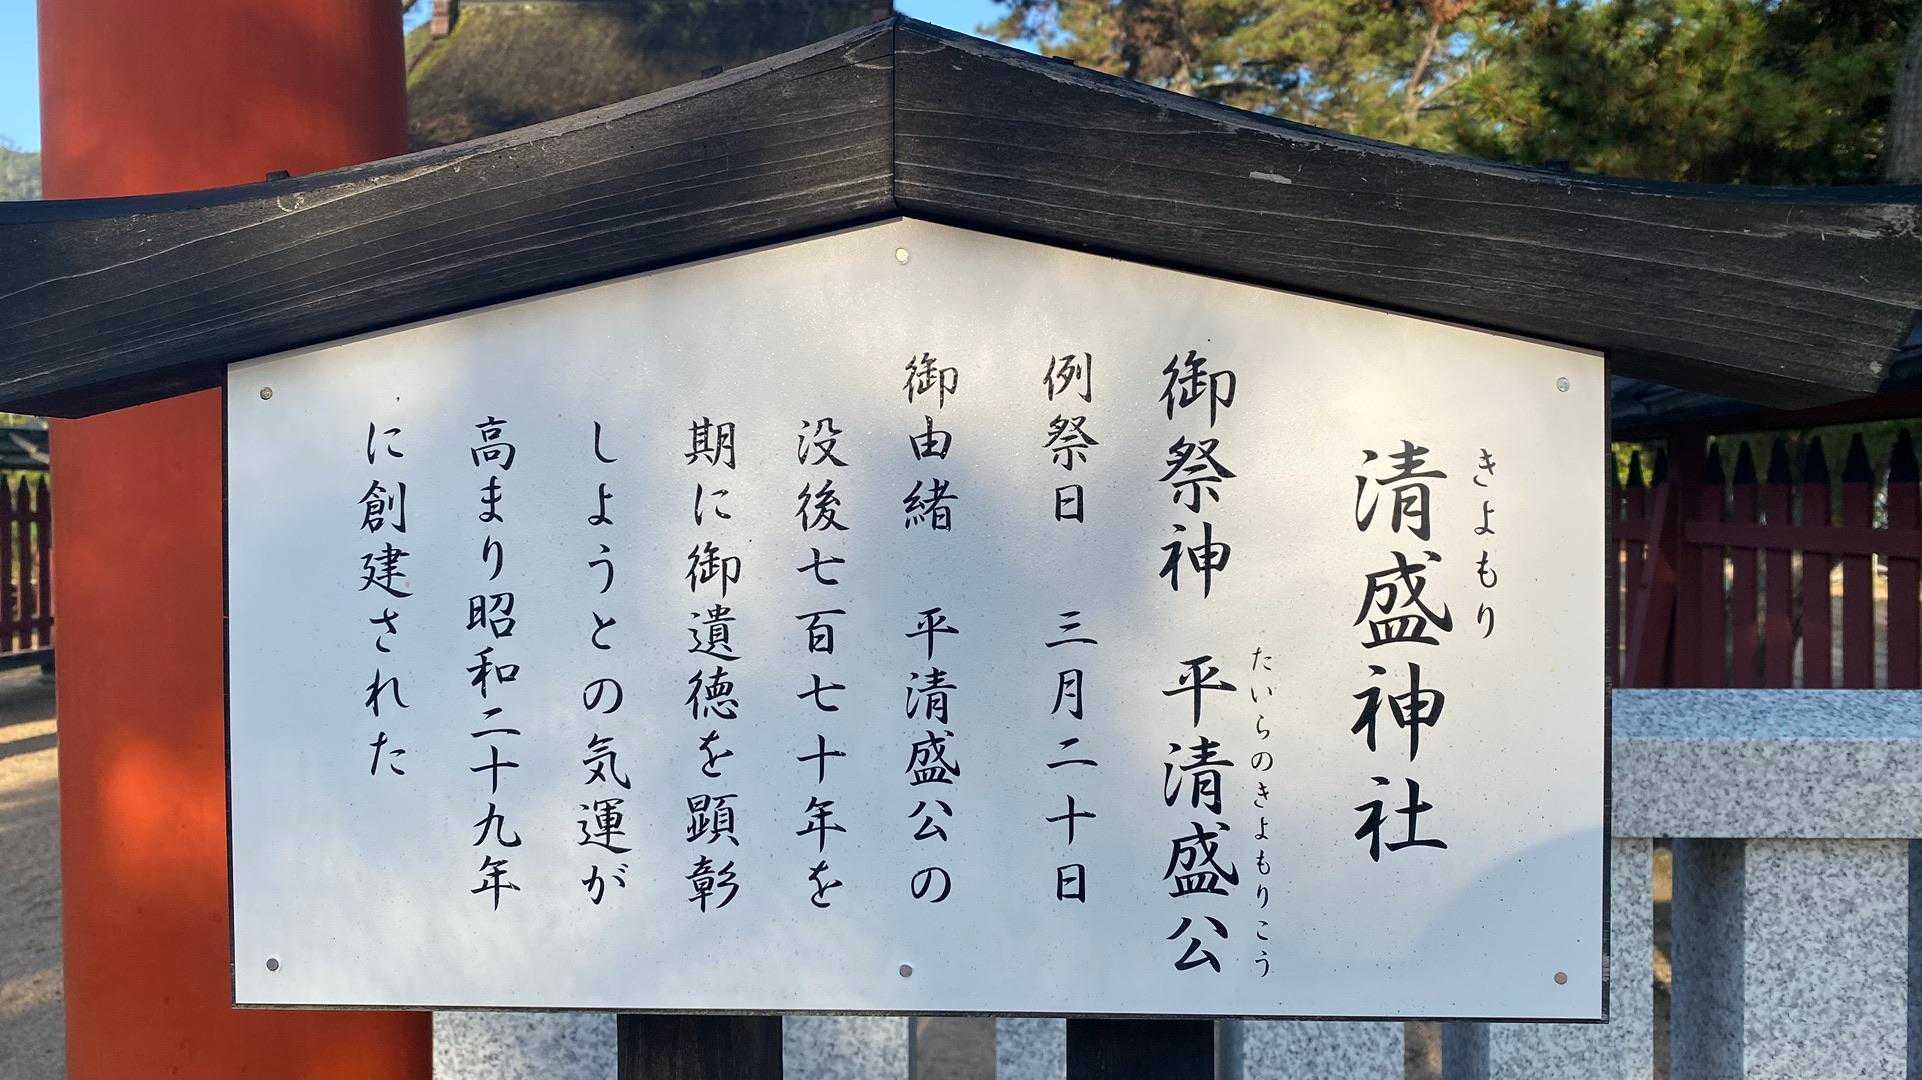 きよもり
清盛神社
たいらのきよもりこう
御祭神　平清盛公
例祭日　三月二十日
御由緒　平清盛公の
没後七百七十年を
期に御遺徳を顕彰
しようとの気運が
高まり昭和二十九年
に創建された